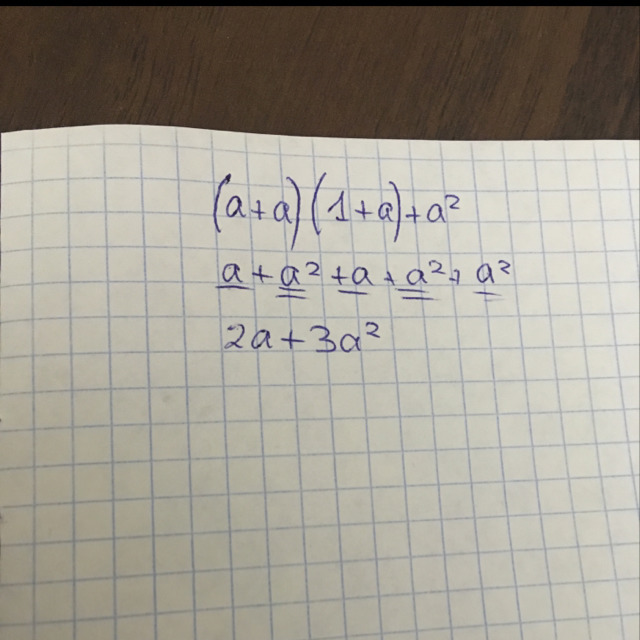 (a+a)(1+a)+a²
a+a²+a+a²+a²
2a+3a²